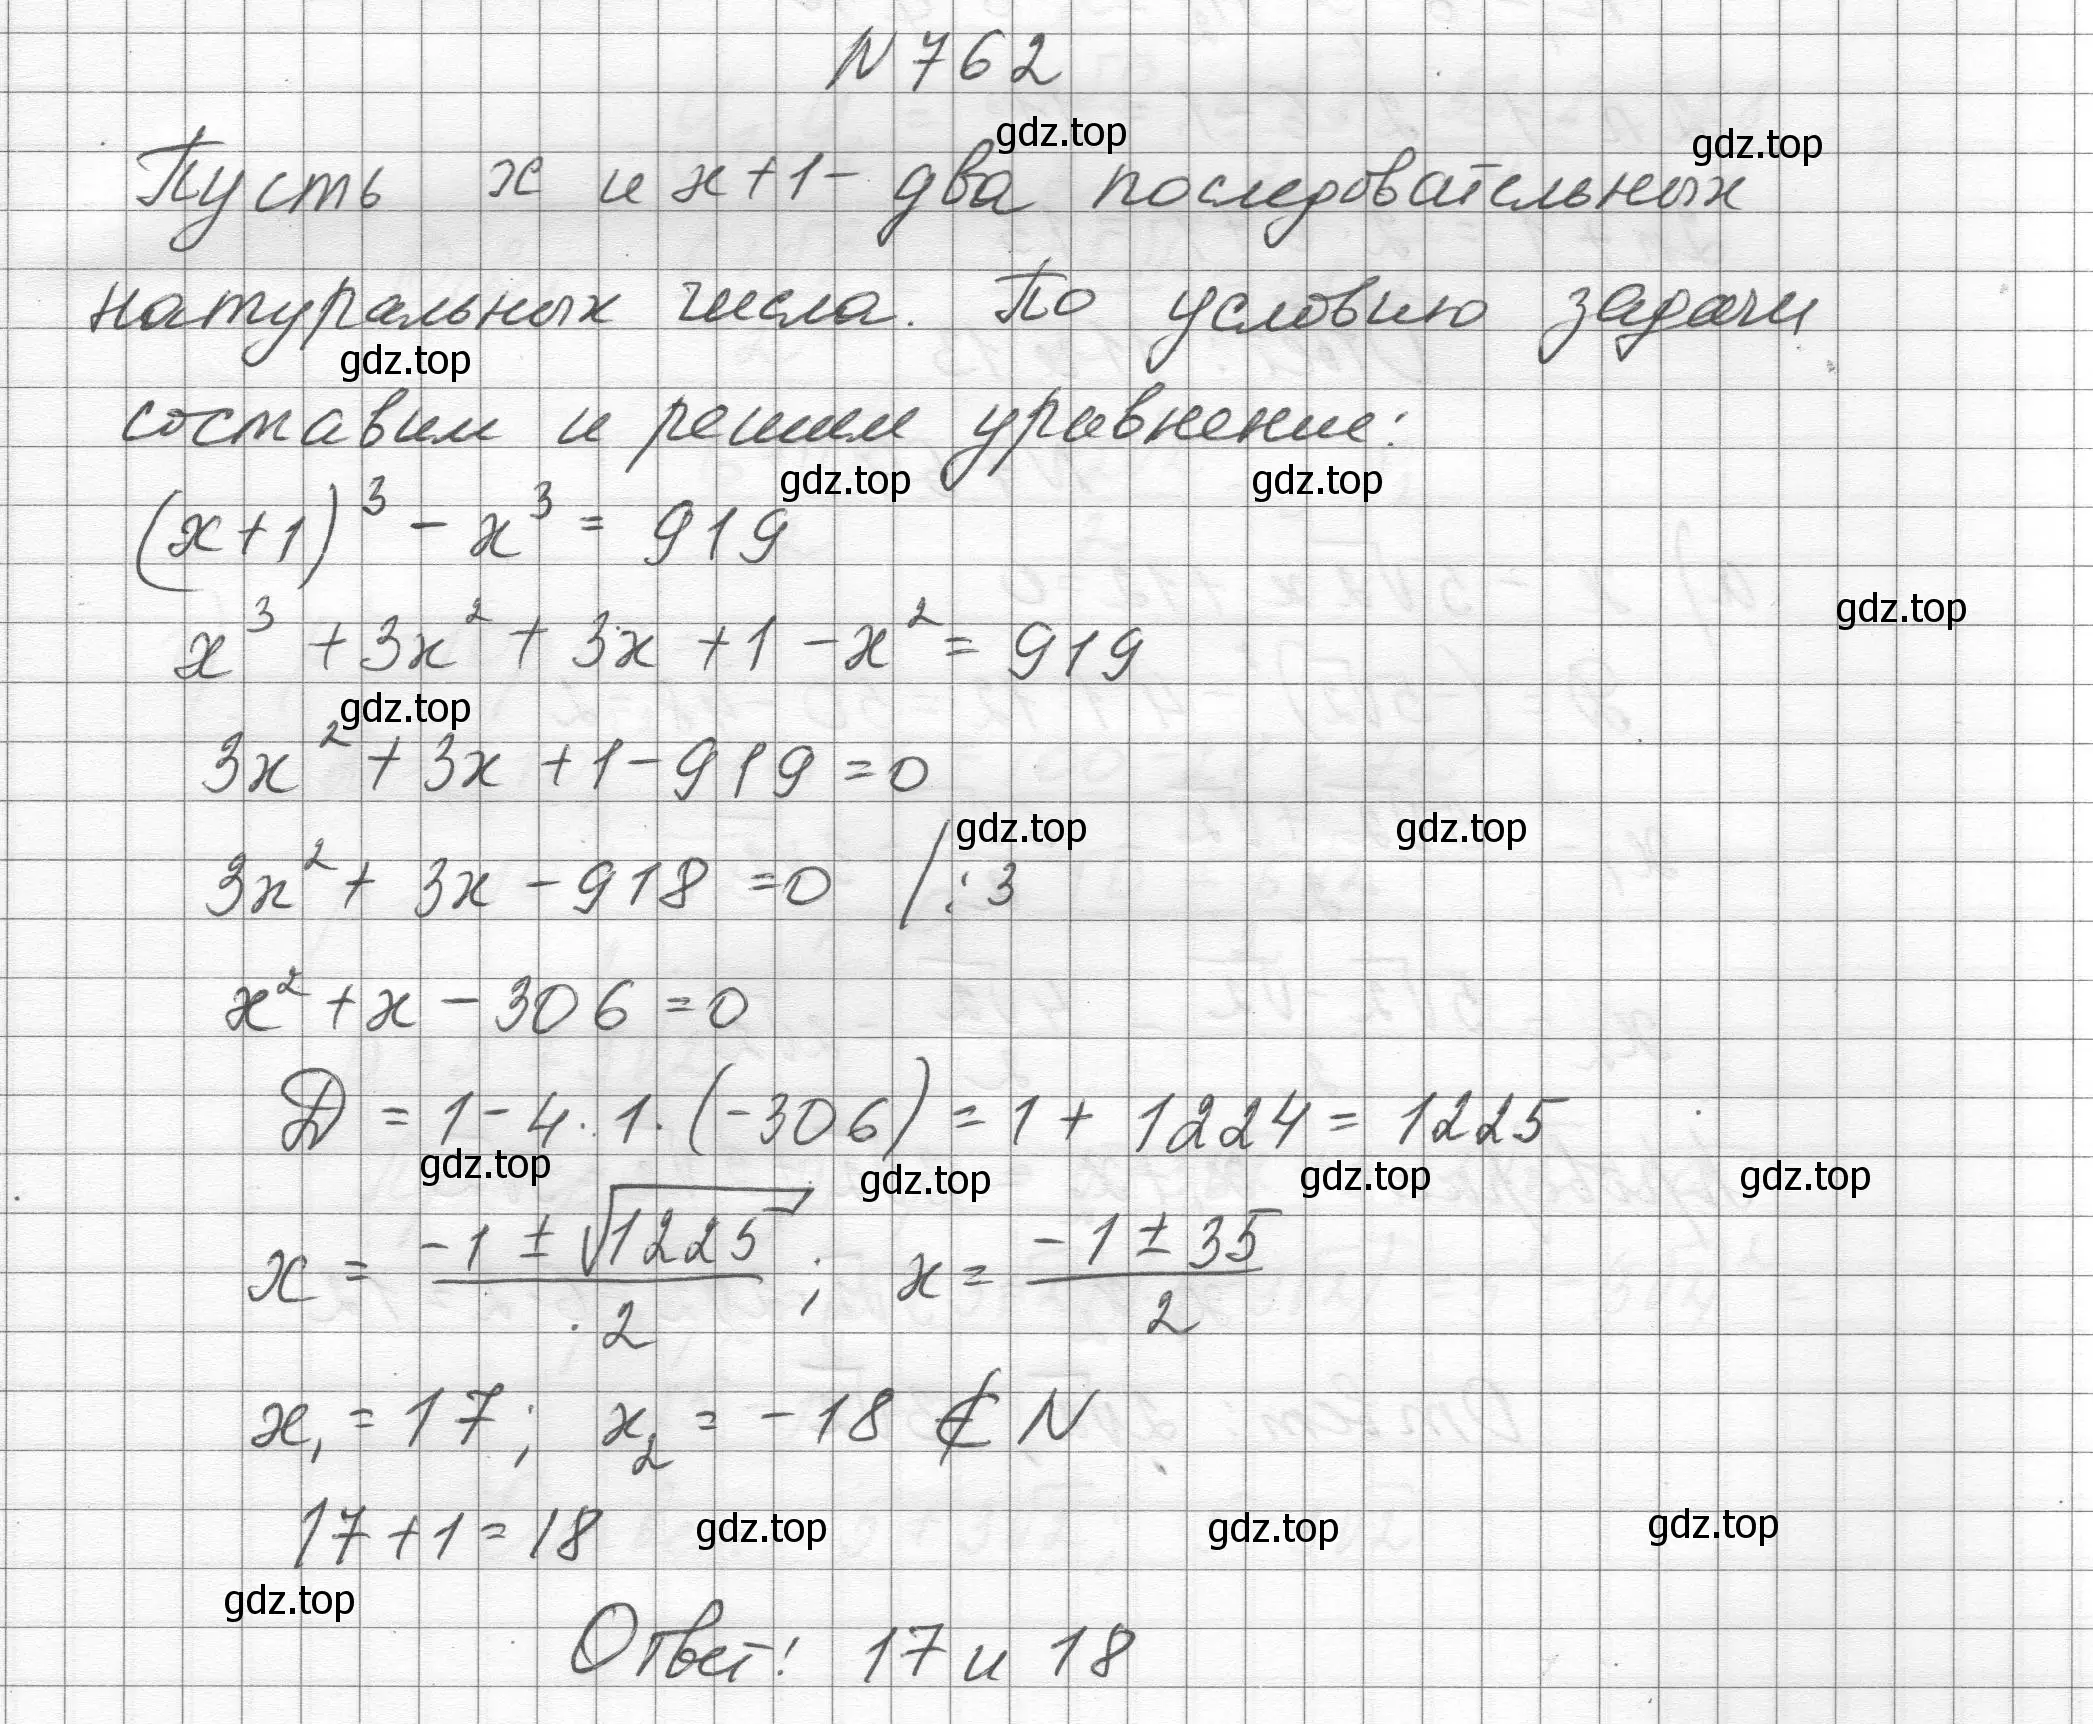 N 762
gdz.top
gdz.top
Пусть x и x+1 - два последовательных
натуральных числа. По условию задачи
gdz.top
составим и решим уравнение:
gdz.top
gdz.top
(x+1)³ - x³ = 919
gdz.top
x³ + 3x² + 3x + 1 - x² = 919
gdz.top
3x² + 3x + 1 - 919 = 0
gdz.top
gdz.top
3x² + 3x - 918 = 0 / : 3
x² + x - 306 = 0
D = 1 - 4 · 1 · (-306) = 1 + 1224 = 1225
gdz.top
gdz.top
gdz.top
gdz.top
x = (-1 ± √1225)/2 ; x = (-1 ± 35)/2
x₁ = 17 ; x₂ = -18 ∉ N
17 + 1 = 18
gdz.top
gdz.top
gdz.top
gdz.top
Ответ: 17 и 18